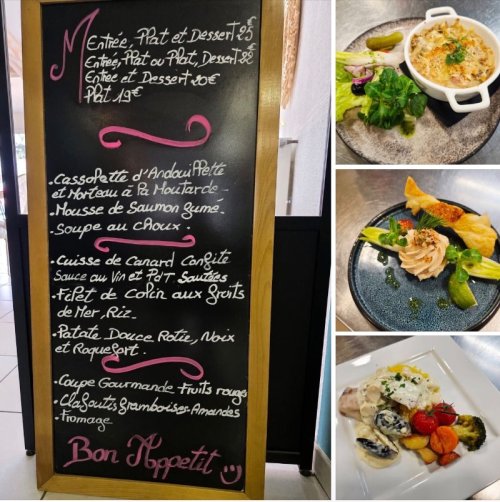 M Entrée, Plat et Dessert 25€
Entrée, Plat ou Plat, Dessert 22€
Entrée et Dessert 20€
Plat 19€
.Cassolette d'Andouillette
et Morteau à la Moutarde-
-Mousse de Saumon fumé.
-soupe au choux.
.Cuisse de canard Confite
Sauce au Vin et PdT Sautées
.Filet de Colin aux fruits
de Mer, Riz.
.Patate Douce Rotie, Noix
et Roquefort.
.Coupe Gourmande Fruits rouges
.Clafoutis framboises-Amandes
.Fromage
Bon Appetit